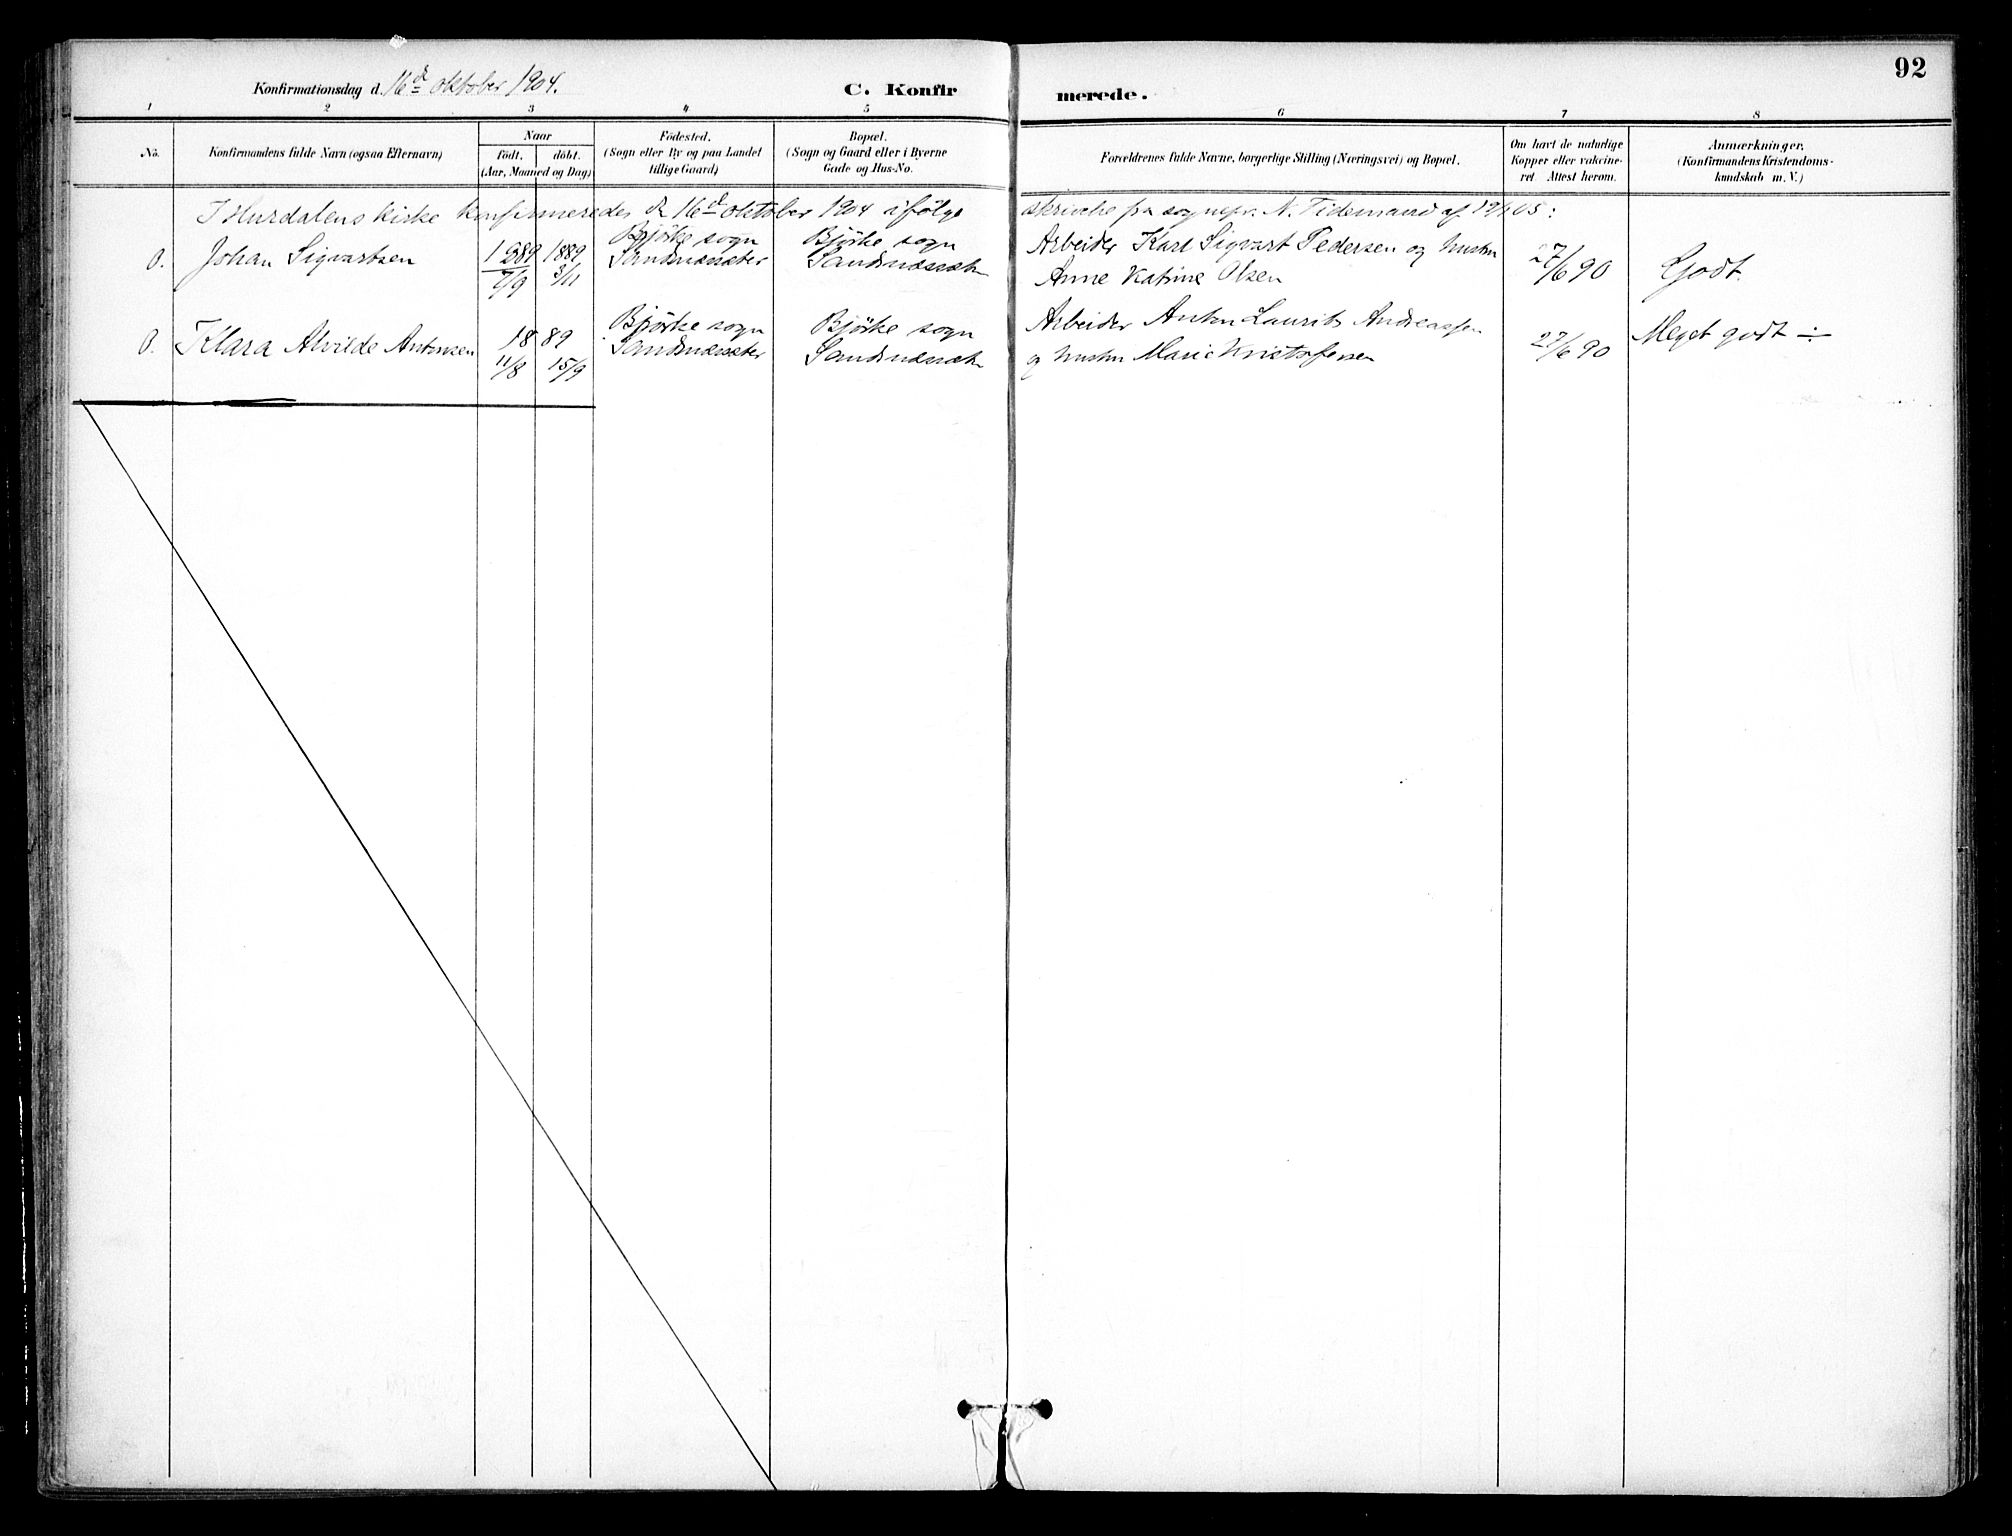 92
Konfirmationsdag d. 16d oktober 1904.
C. Konfirmerede.
1 2 3 4 5 6 7 8
No.
Konfirmandens fulde Navn (ogsaa Efternavn)
Naar
födt. döbt.
(Aar, Maaned og Dag)
Födested.
(Sogn eller By og paa Landet
tillige Gaard)
Bopæl.
(Sogn og Gaard eller i Byerne
Gade og Hus-No.
Forældrenes fulde Navne, borgerlige Stilling (Næringsvei) og Bopæl.
Om havt de naturlige
Kopper eller vakcine-
ret. Attest herom.
Anmærkninger.
(Konfirmandens Kristendoms-
kundskab m. V.)
I Hurdalens kirke konfirmeredes d. 16d oktober 1904 ifølge skrivelse fra sognepr. N. Tidemand af 19/1 05:
0. Johan Sigvartsen 1889 7/9 1889 3/11
Bjørke sogn
Sandnæssæter
Bjørke sogn
Sandnæssæter
Arbeider Karl Sigvart Pedersen og hustru
Anne Katrine Olsen
27/6 90 Godt.
0. Klara Alvilde Antonsen 1889 11/8 15/9
Bjørke sogn
Sandnæssæter
Bjørke sogn
Sandnæssæter
Arbeider Anton Laurits Andreassen
og hustru Marie Kristofersen
27/6 90 Meget godt ÷